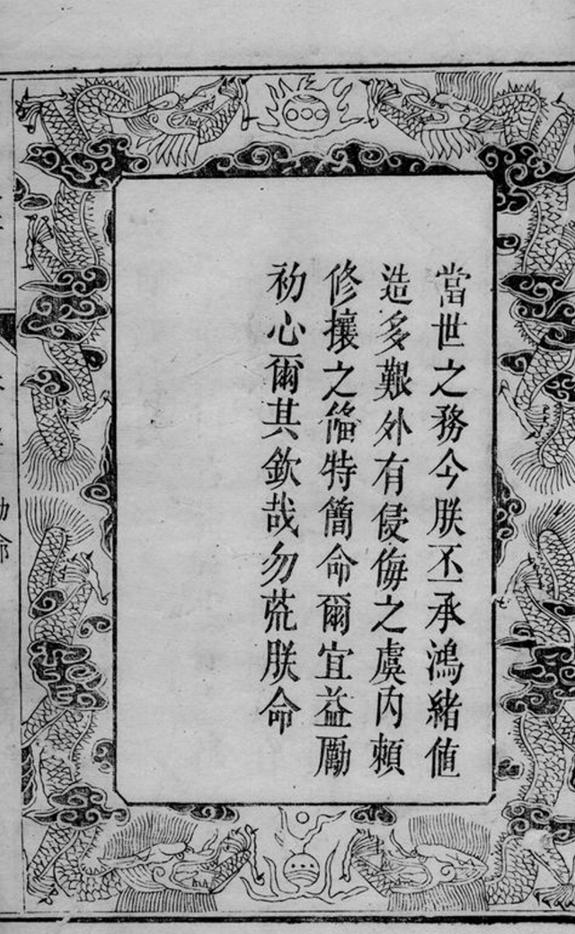 當世之務今朕丕承鴻緒值
造多艱外有侵侮之虞内頼
修攘之俻特簡命爾宜益勵
初心爾其欽哉勿荒朕命